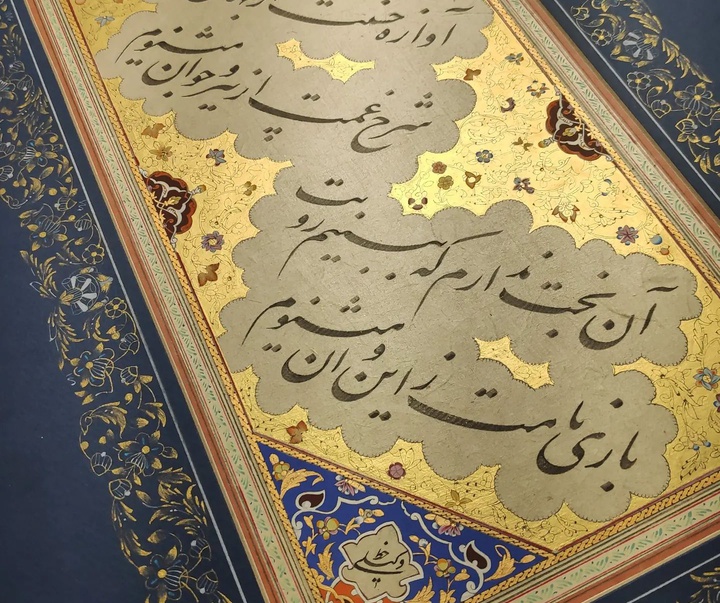 آوازه حسنت
شرح غمت از پیر و جوان میشنوم
آن بخت ندارم که ببینم رویت
باری نامت ز این و آن میشنوم